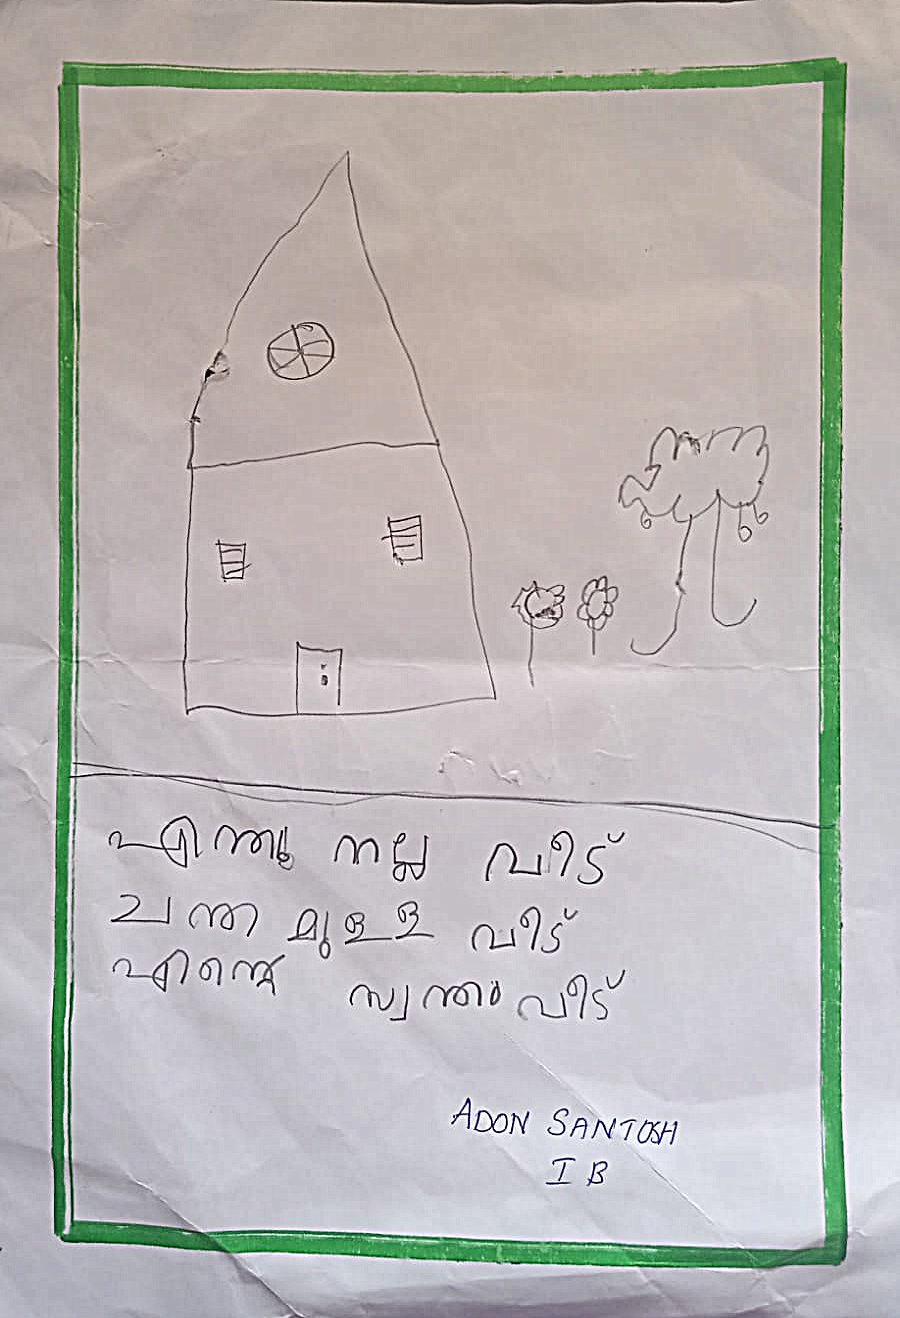 എന്തു നല്ല വീട്
ചന്തമുള്ള വീട്
എന്റെ സ്വന്തം വീട്
ADON SANTOSH
I B